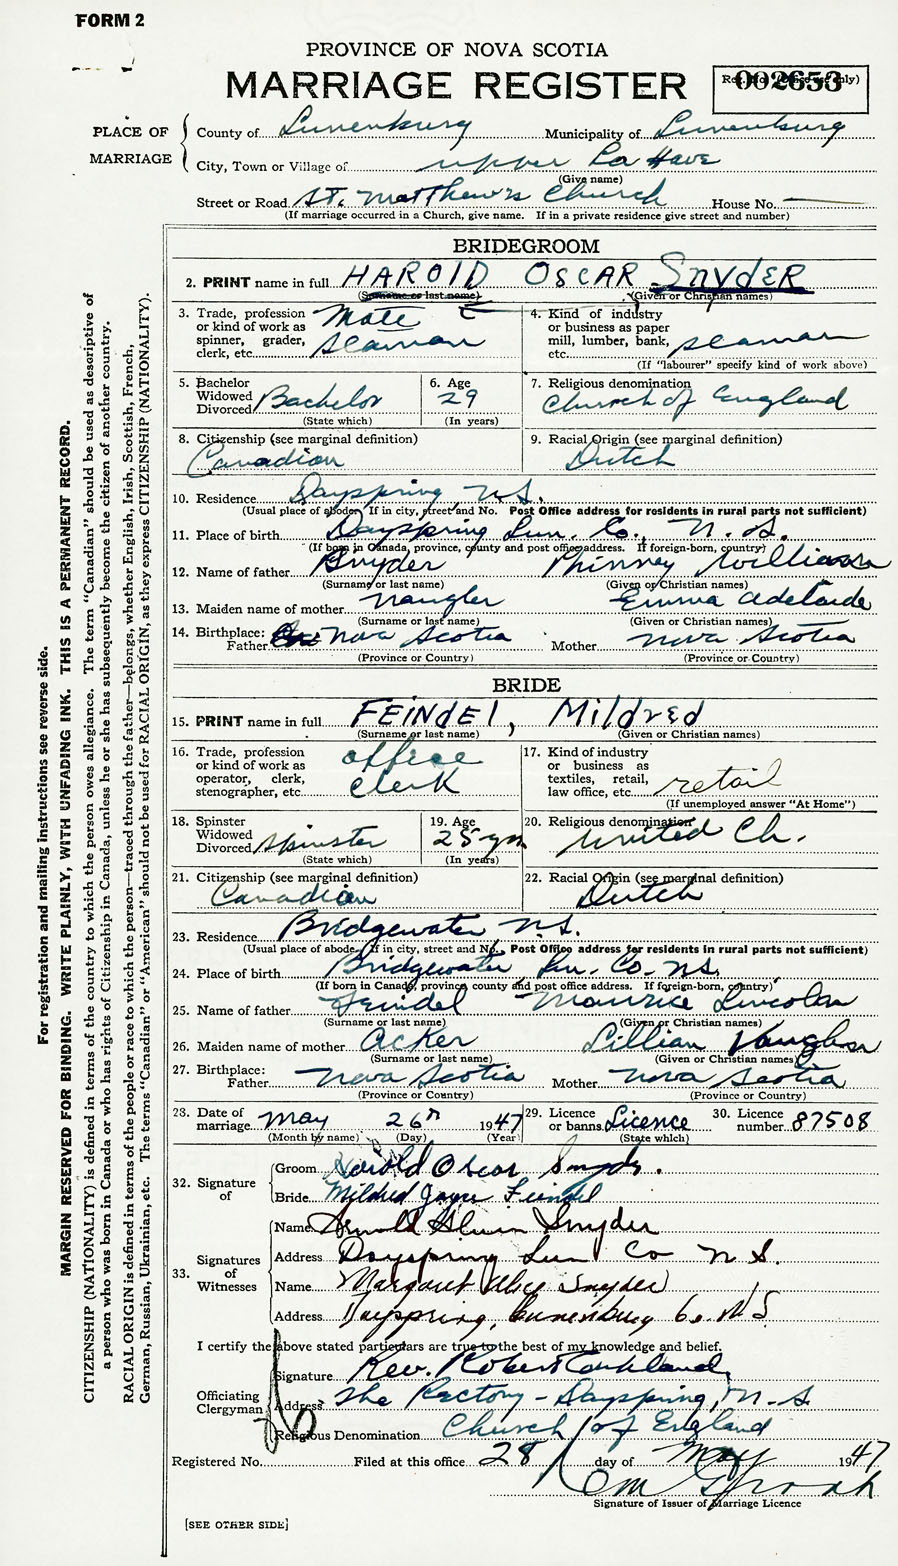 FORM 2
PROVINCE OF NOVA SCOTIA
MARRIAGE REGISTER
Reg. No. (Office use only)
002653
PLACE OF MARRIAGE
County of Lunenburg Municipality of Lunenburg
City, Town or Village of upper La Have
(Give name)
Street or Road St. Matthew's Church House No. —
(If marriage occurred in a Church, give name. If in a private residence give street and number)
BRIDEGROOM
2. PRINT name in full HAROlD OSCAR SnydER
(Surname or last name) (Given or Christian names)
3. Trade, profession or kind of work as spinner, grader, clerk, etc. Mate seaman
4. Kind of industry or business as paper mill, lumber, bank, etc. seaman
(If "labourer" specify kind of work above)
5. Bachelor Widowed Divorced Bachelor
(State which)
6. Age 29
(In years)
7. Religious denomination Church of England
8. Citizenship (see marginal definition) Canadian
9. Racial Origin (see marginal definition) Dutch
10. Residence Dayspring N.S.
(Usual place of abode. If in city, street and No. Post Office address for residents in rural parts not sufficient)
11. Place of birth Dayspring Lun. Co., N.S.
(If born in Canada, province, county and post office address. If foreign-born, country)
12. Name of father Snyder Phinney William
(Surname or last name) (Given or Christian names)
13. Maiden name of mother Naugler Emma Adelaide
(Surname or last name) (Given or Christian names)
14. Birthplace: Father Nova Scotia Mother Nova Scotia
(Province or Country) (Province or Country)
BRIDE
15. PRINT name in full FEINdEl, Mildred
(Surname or last name) (Given or Christian names)
16. Trade, profession or kind of work as operator, clerk, stenographer, etc. office clerk
17. Kind of industry or business as textiles, retail, law office, etc. retail
(If unemployed answer "At Home")
18. Spinster Widowed Divorced Spinster
(State which)
19. Age 25 yrs
(In years)
20. Religious denomination United Ch.
21. Citizenship (see marginal definition) Canadian
22. Racial Origin (see marginal definition) Dutch
23. Residence Bridgewater N.S.
(Usual place of abode. If in city, street and No. Post Office address for residents in rural parts not sufficient)
24. Place of birth Bridgewater Lun. Co. N.S.
(If born in Canada, province county and post office address. If foreign-born, country)
25. Name of father Feindel Maurice Lincoln
(Surname or last name) (Given or Christian names)
26. Maiden name of mother Acker Lillian Vaughn
(Surname or last name) (Given or Christian names)
27. Birthplace: Father Nova Scotia Mother Nova Scotia
(Province or Country) (Province or Country)
23. Date of marriage May 26th 1947
(Month by name) (Day) (Year)
29. Licence or banns Licence
(State which)
30. Licence number 87508
32. Signature of
Groom Harold Oscar Snyder.
Bride Mildred Jayne Feindel
33. Signatures of Witnesses
Name Arnold Snyder
Address Dayspring Lun Co N S.
Name Margaret Alice Snyder
Address Dayspring, Lunenburg Co. N.S
I certify the above stated particulars are true to the best of my knowledge and belief.
Officiating Clergyman
Signature Rev. Robert
Address The Rectory - Dayspring, N.S.
Religious Denomination Church of England
Registered No. Filed at this office 28 day of May 1947
Signature of Issuer of Marriage Licence
[SEE OTHER SIDE]
For registration and mailing instructions see reverse side.
MARGIN RESERVED FOR BINDING. WRITE PLAINLY, WITH UNFADING INK. THIS IS A PERMANENT RECORD.
CITIZENSHIP (NATIONALITY) is defined in terms of the country to which the person owes allegiance. The term "Canadian" should be used as descriptive of
a person who was born in Canada or who has rights of Citizenship in Canada, unless he or she has subsequently become the citizen of another country.
RACIAL ORIGIN is defined in terms of the people or race to which the person—traced through the father—belongs, whether English, Irish, Scottish, French,
German, Russian, Ukrainian, etc. The terms "Canadian" or "American" should not be used for RACIAL ORIGIN, as they express CITIZENSHIP (NATIONALITY).